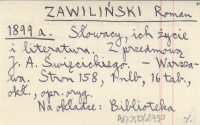 ZAWILIŃSKI Roman
1899 a. Słowacy, ich życie
i literatura. Z przedmową
J. A. Święcickiego. - Warsza-
wa. Stron 158, 1 nlb, 16 tab.,
okł., opr. oryg.
Na okładce: Biblioteka